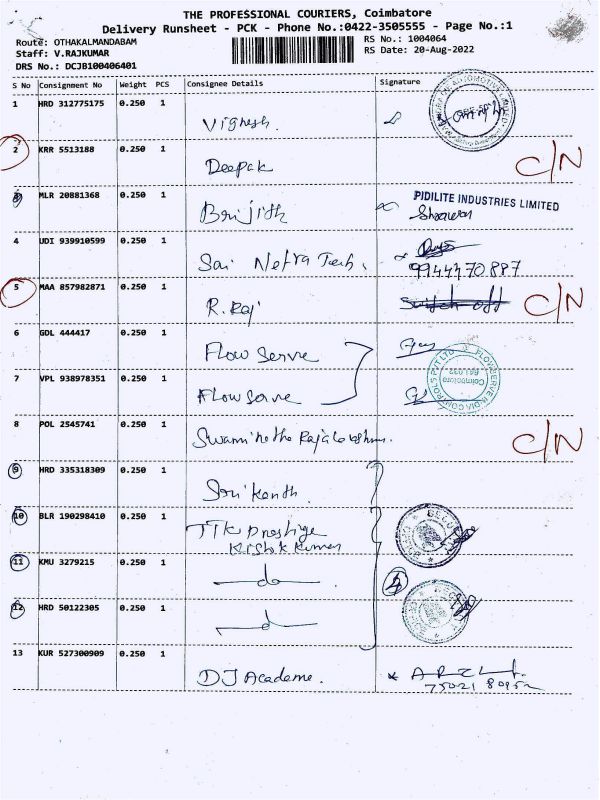 THE PROFESSIONAL COURIERS, Coimbatore
Delivery Runsheet - PCK - Phone No.:0422-3505555 - Page No.:1
Route: OTHAKALMANDABAM RS No.: 1004064
Staff: V.RAJKUMAR RS Date: 20-Aug-2022
DRS No.: DCJB100406401
S No Consignment No Weight PCS Consignee Details Signature
1 HRD 312775175 0.250 1 Vignesh
2 KRR 5513188 0.250 1 Deepak C/N
3 MLR 20881368 0.250 1 Brijith PIDILITE INDUSTRIES LIMITED
4 UDI 939910599 0.250 1 Sai Netra Tech.
9944770887
5 MAA 857982871 0.250 1 R. Raj Switch off C/N
6 GDL 444417 0.250 1 Flow Serve
7 VPL 938978351 0.250 1 Flow Serve Coimbatore
8 POL 2545741 0.250 1 C/N
9 HRD 335318309 0.250 1 Sri Kanth.
10 BLR 190298410 0.250 1 TTK Prestige
Kumar
11 KMU 3279215 0.250 1 do
12 HRD 50122305 0.250 1 do
13 KUR 527300909 0.250 1 DJ Academe.